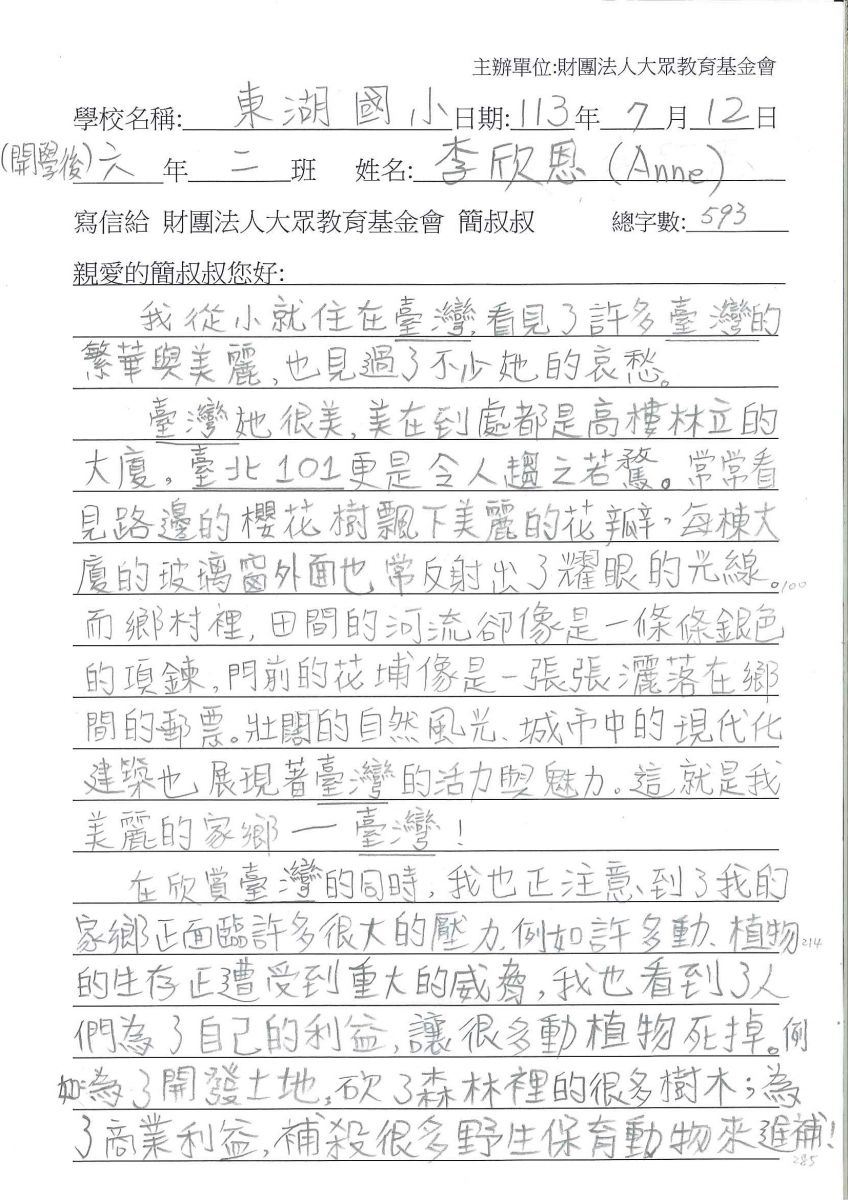 主辦單位:財團法人大眾教育基金會
學校名稱: 東湖國小 日期: 113 年 7 月 12 日
(開學後) 六 年 二 班 姓名: 李欣恩 (Anne)
寫信給 財團法人大眾教育基金會 簡叔叔 總字數: 593
親愛的簡叔叔您好:
我從小就住在臺灣,看見了許多臺灣的
繁華與美麗,也見過了不少她的哀愁。
臺灣她很美,美在到處都是高樓林立的
大廈,臺北101更是令人趨之若鶩。常常看
見路邊的櫻花樹飄下美麗的花瓣,每棟大
廈的玻璃窗外面也常反射出了耀眼的光線。100
而鄉村裡,田間的河流卻像是一條條銀色
的項鍊,門前的花埔像是一張張灑落在鄉
間的郵票。壯闊的自然風光、城市中的現代化
建築也展現著臺灣的活力與魅力。這就是我
美麗的家鄉—臺灣!
在欣賞臺灣的同時,我也正注意到了我的
家鄉正面臨許多很大的壓力,例如許多動、植物214
的生存正遭受到重大的威脅,我也看到了人
們為了自己的利益,讓很多動植物死掉。例
如:為了開發土地,砍了森林裡的很多樹木;為
了商業利益,補殺很多野生保育動物來進補!
285